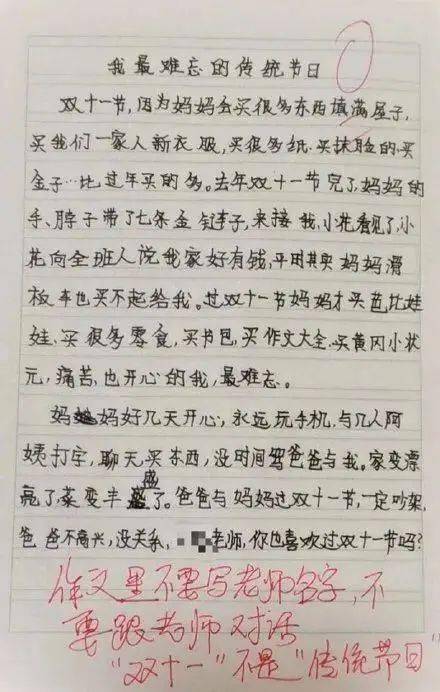 我最难忘的传统节日
双十一节，因为妈妈会买很多东西填满屋子，
买我们一家人新衣服，买很多纸、买抹脸的、买
金子…比过年买的多。去年双十一节完了，妈妈的
手、脖子带了七条金链子，来接我，小花看见了，小
花向全班人说我家好有钱，平田其实妈妈滑
板车也买不起给我。过双十一节妈妈才买芭比娃
娃、买很多零食，买书包，买作文大全、买黄冈小状
元，痛苦，也开心的我，最难忘。
妈妈好几天开心，永远玩手机，与几人阿
姨打字，聊天，买东西，没时间骂爸爸与我。家变漂
亮了，菜变丰盛了。爸爸与妈妈过双十一节，一定吵架，
爸爸不高兴，没关系，老师，你也喜欢过双十一节吗？
作文里不要写老师名字，不
要跟老师对话
"双十一"不是"传统节日"